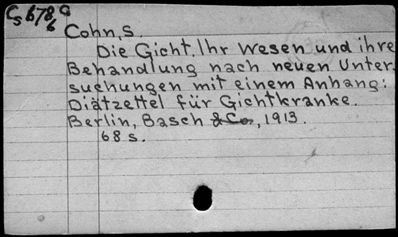 C5678
6
G
Cohn, S.
Die Gicht, Ihr Wesen und ihre
Behandlung nach neuen Unter-
suchungen mit einem Anhang:
Diätzettel für Gichtkranke.
Berlin, Basch & Co., 1913.
68 s.